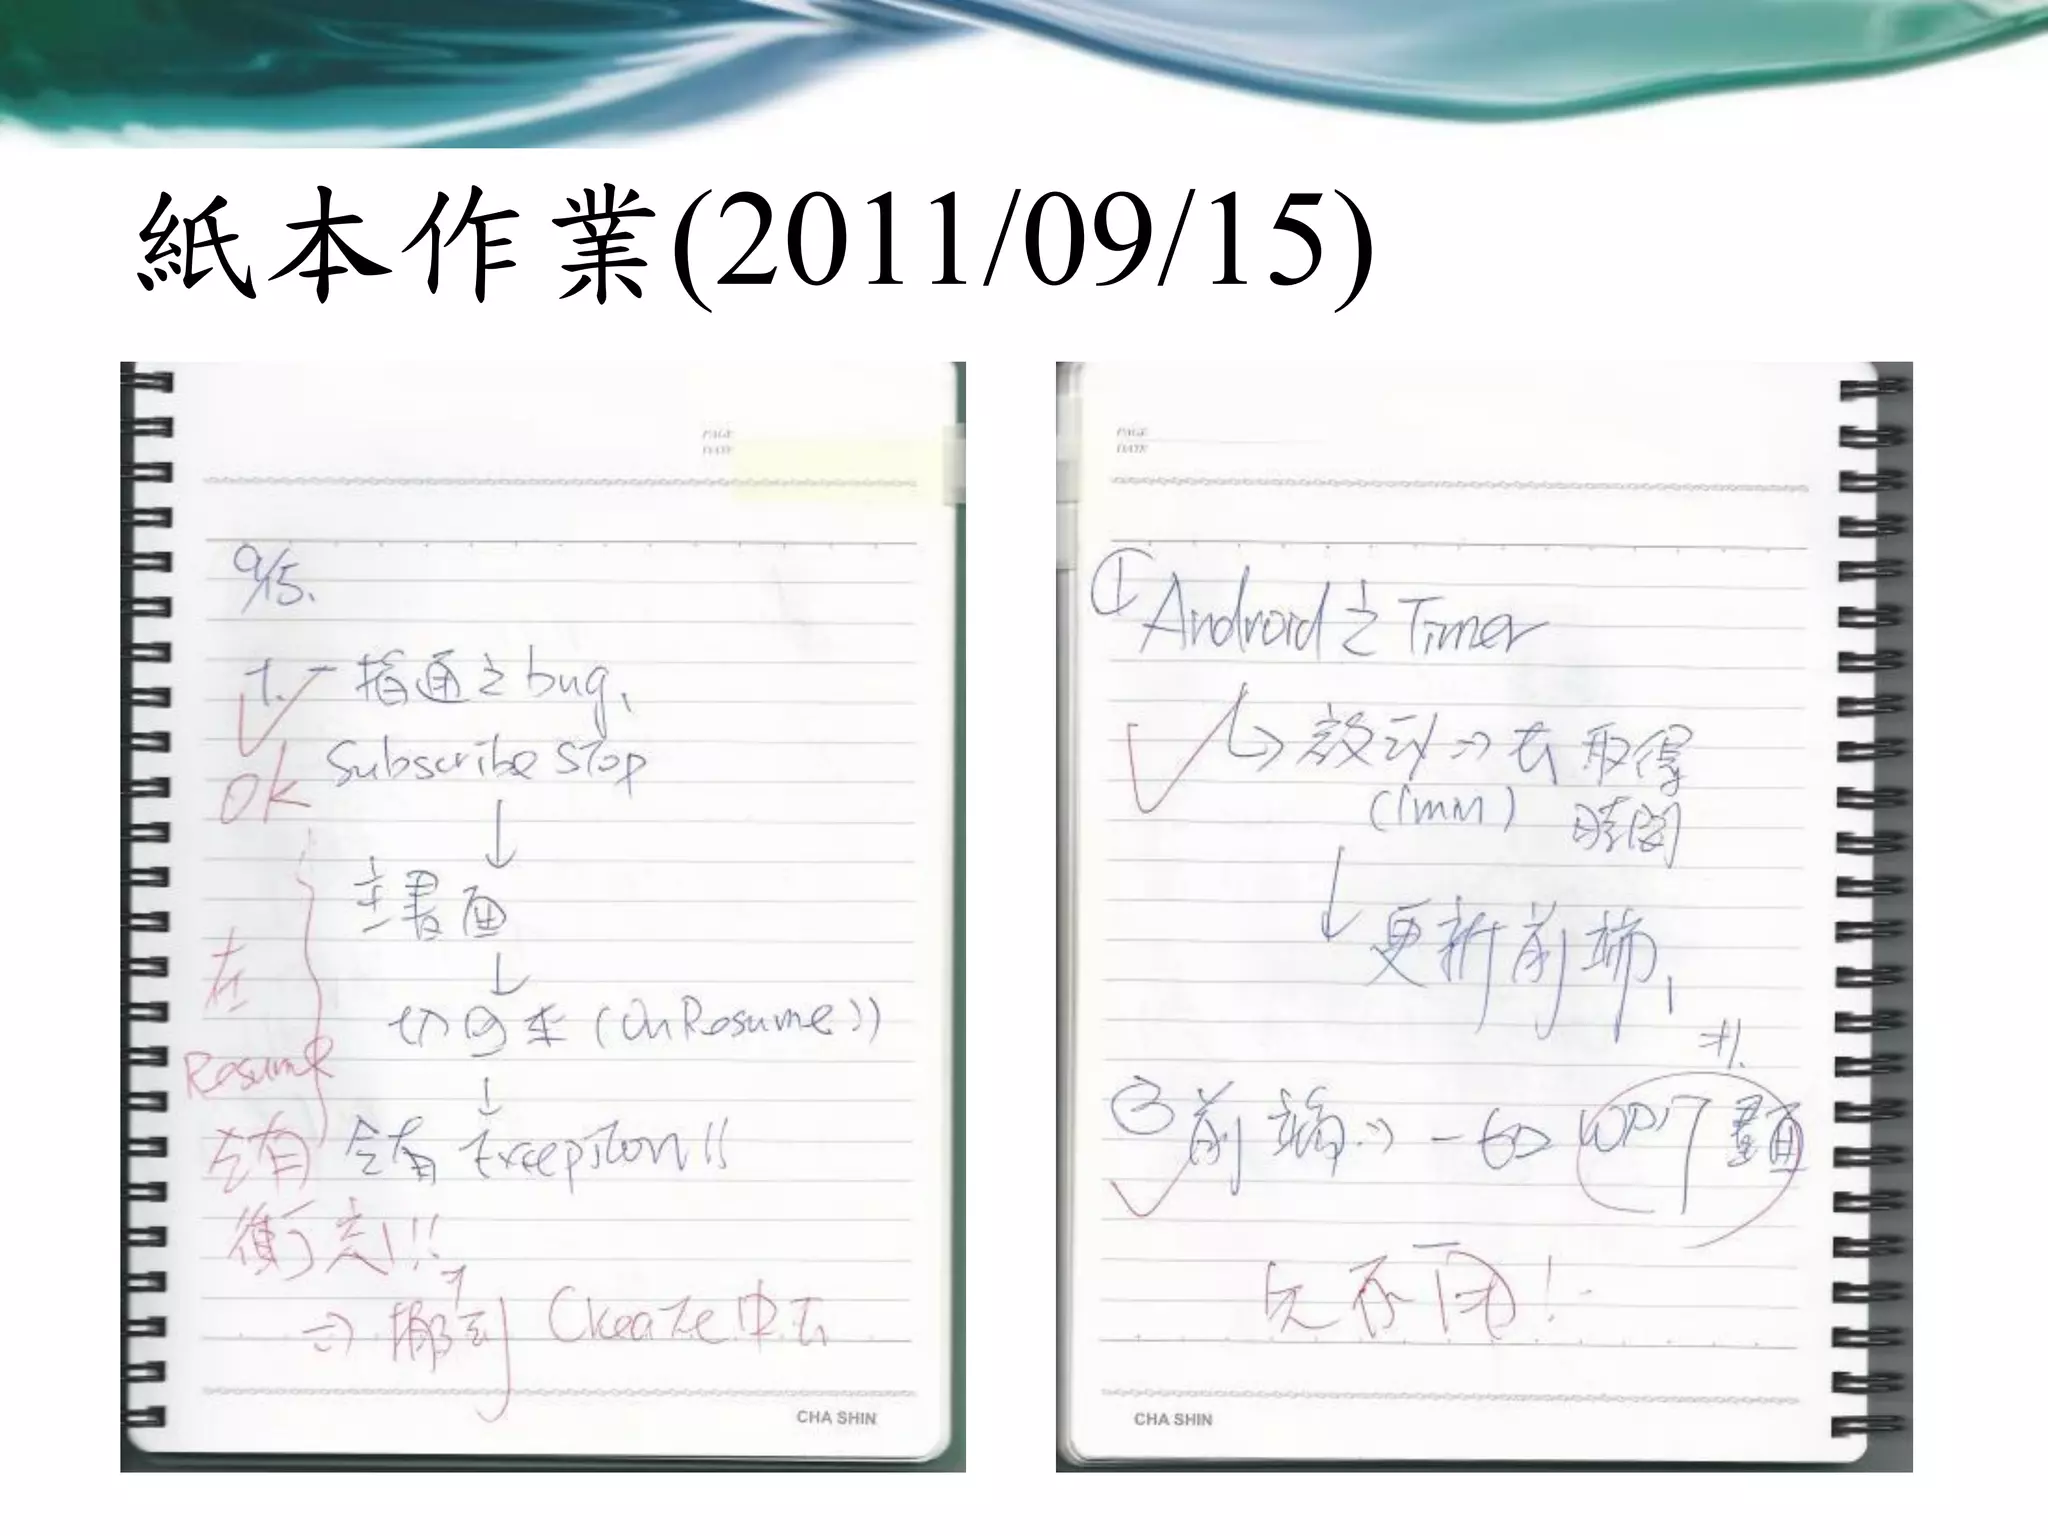 紙本作業(2011/09/15)
PAGE
DATE
9/15.
1. 一指通之bug,
Subscribe Stop
↓
主畫面
↓
切回來(OnResume())
↓
會有 Exception!!
OK
在
Resume
會有
衝突!!
⇒ 挪到 Create中去
CHA SHIN
PAGE
DATE
① Android之Timer
↳ 啟動→去取得
(1min) 時間
↓ 更新前端,
② 前端⇒ 一如 WP7畫面
先不用!
CHA SHIN